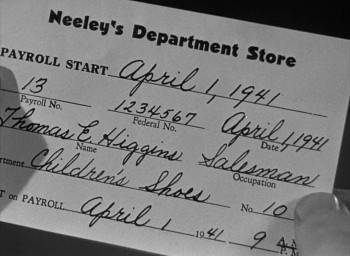 Neeley's Department Store
PAYROLL START April 1, 1941
13 1234567 April 1, 1941
Payroll No. Federal No. Date
Thomas E. Higgins Salesman
Name Occupation
Children's Shoes No. 10
on PAYROLL April 1 1941 9